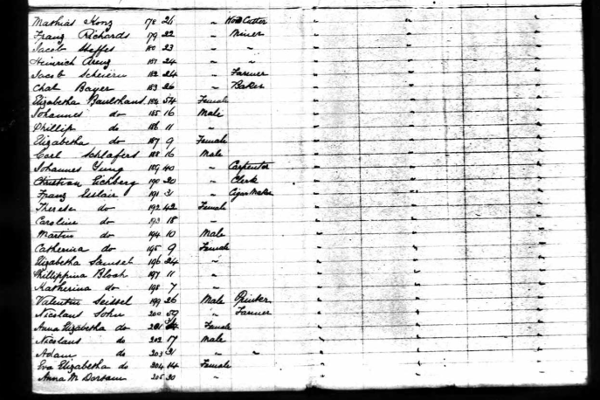 Mathias Konz 178 26 " Wood Cutter
Franz Richards 179 22 " Miner
Jacob Steffes 180 23 " "
Heinrich Arenz 181 24 " "
Jacob Scheiern 182 24 " Farmer
Chat Bayer 183 26 " Baker
Elizabetha Baulshaus 184 54 Female
Johannes do 185 16 Male
Phillip do 186 11 "
Elizabetha do 187 9 Female
Carl Schlafers 188 16 Male
Johannes Jung 189 40 " Carpenter
Christian Eichberg 190 20 " Clerk
Franz 191 31 " Cigar Maker
Therese do 192 42 Female
Caroline do 193 18 "
Martin do 194 10 Male
Catherina do 195 9 Female
Elizabetha Samsel 196 24 "
Phillippina Bloch 197 11 "
Katherina do 198 7 "
Valentin Seissel 199 26 Male
Nicolaus John 200 59 " Farmer
Anna Elizabetha do 201 Female
Nicolaus do 202 17 Male
Adam do 203 21 " "
Eva Elizabetha do 204 14 Female
Anna M Dorsam 205 30 "